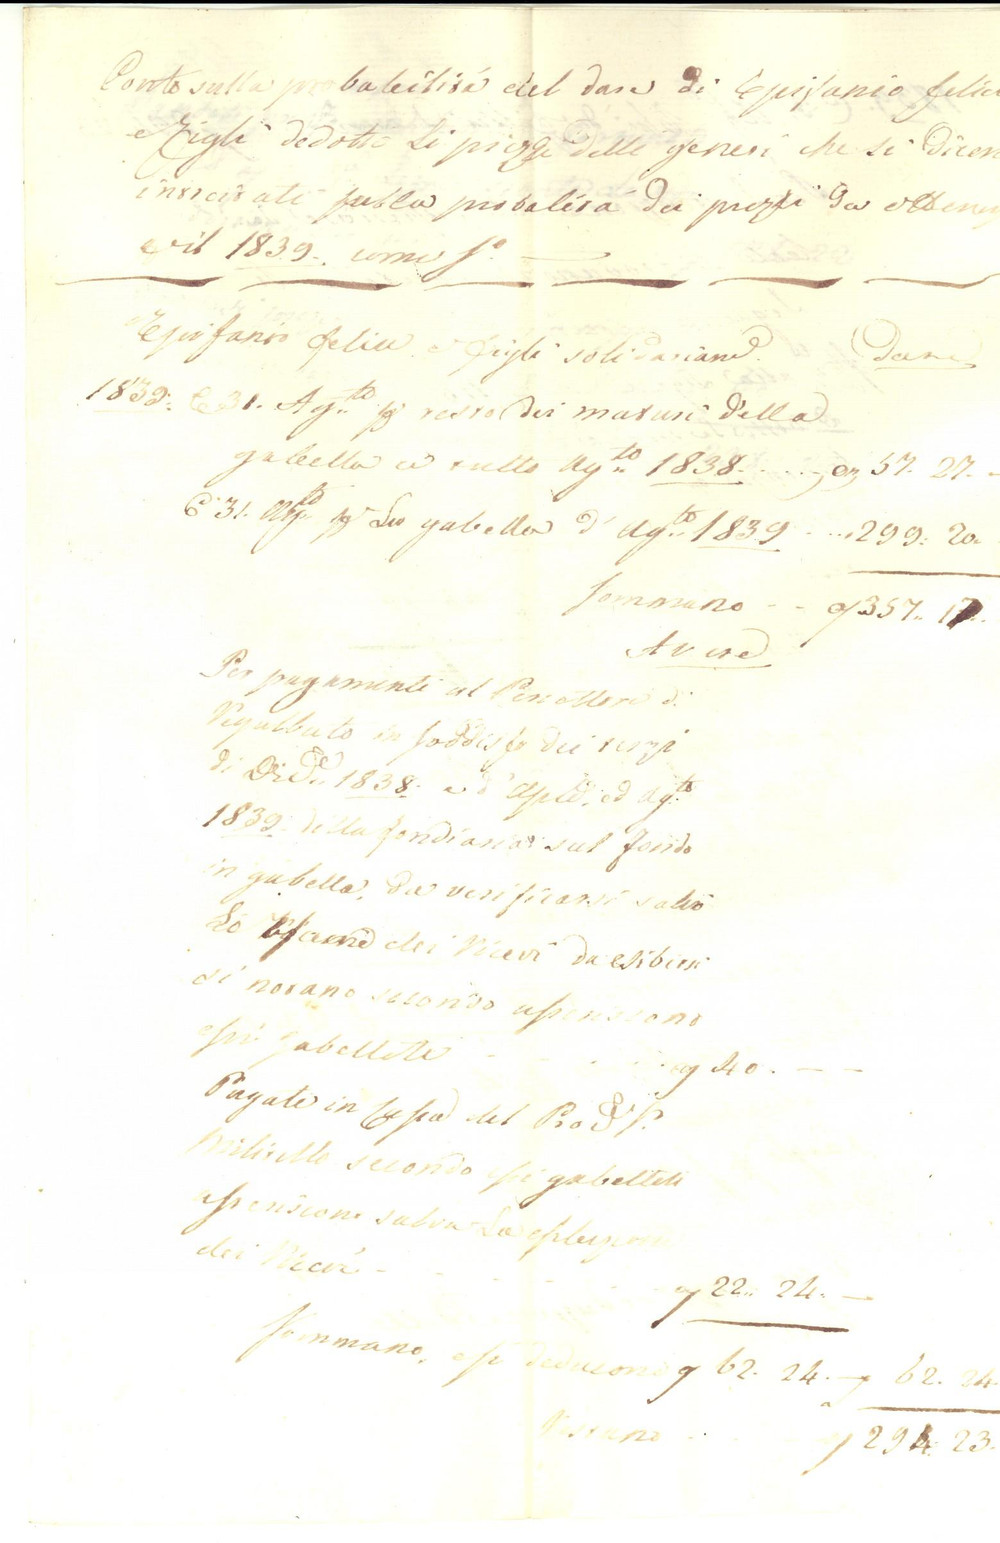 Conto sulla probabilità del dare di Epifanio felice
e figli dedotti li prezzi delli generi che si dicono
introitati sulla probalità dei prezzi da ottenersi
e il 1839. come s.o
Epifanio felice e figli solidariamte. Dare
1839. E 31. Agto. pr resto dei maturi della
gabella a tutto Agto 1838. ..... oz 57. 27. -
E 31. Agto pr La gabella d' Agto 1839 ..... 299. 20
Sommano - - oz 357. 17.
Avere
Per pagamenti al Percettore di
Regalbuto in soddisfo dei terzi
di Dicre. 1838. e d' Aple. ed Agto
1839. della fondiaria sul fondo
in gabella, da verificarsi salvo
Lo esame dei ricevi da esibirsi
si notano secondo asseriscono
essi gabelloti oz 40. — —
Pagati in Cassa del
secondo essi gabelloti
asseriscono salva La esibizione
dei Ricevi - - - oz 22. 24. —
Sommano, e si deducono oz 62. 24. — oz 62. 24.
Restano - - - oz 294. 23.